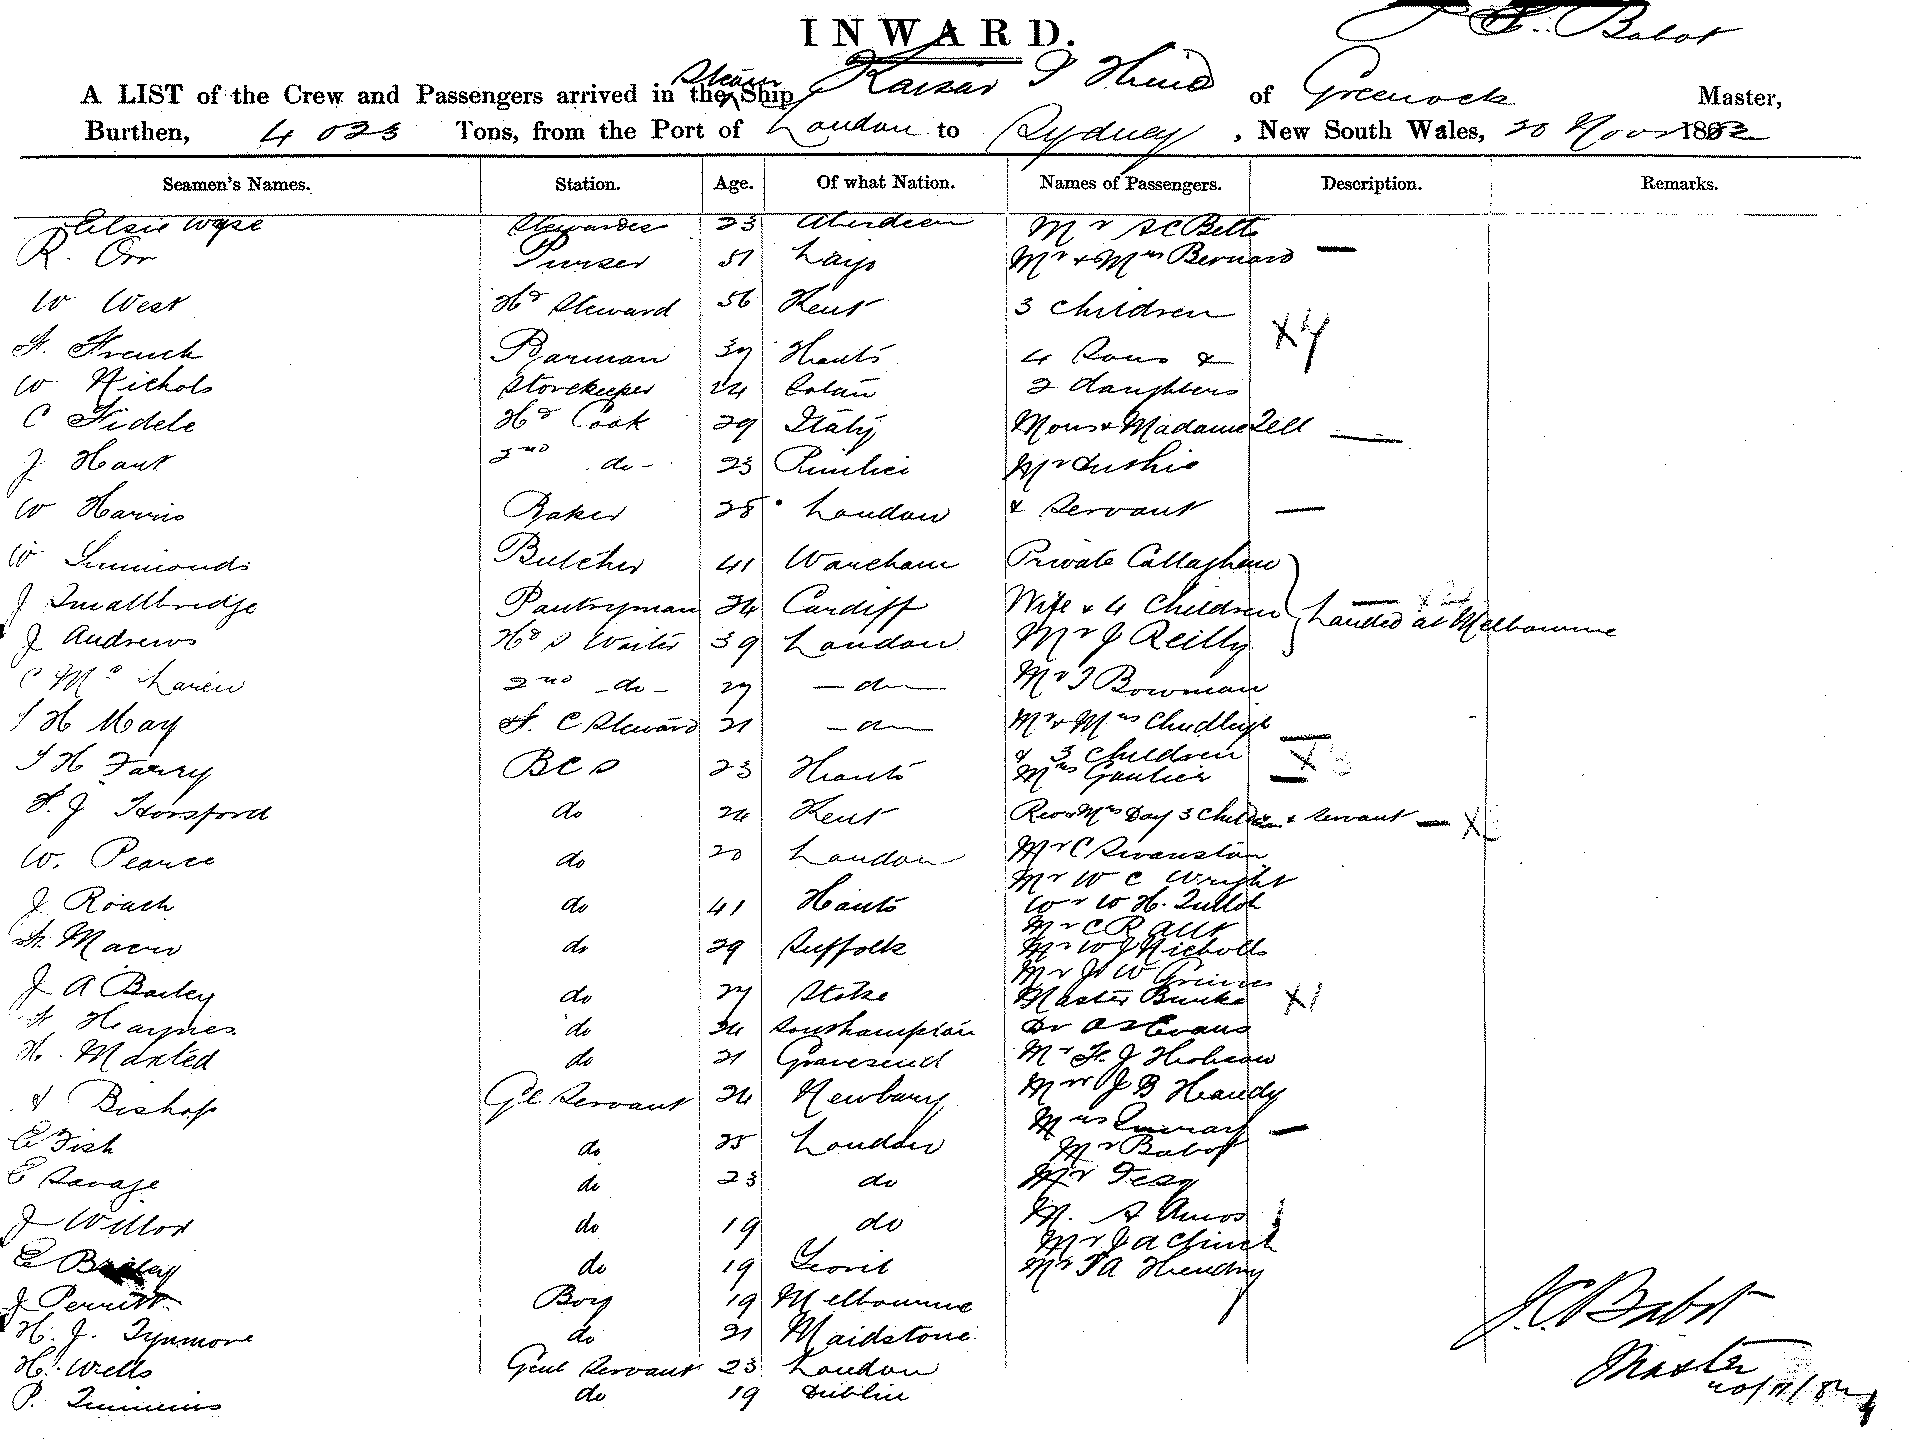 INWARD. Babot
A LIST of the Crew and Passengers arrived in the Steam Ship Kaisar I Hind of Greenock Master,
Burthen, 4023 Tons, from the Port of London to Sydney, New South Wales, 20 Novr 1882
Seamen's Names. Station. Age. Of what Nation. Names of Passengers. Description. Remarks.
Elsie Wyse Stewardess 23 Aberdeen Mr A C Betts
R. Orr Purser 51 Mr & Mrs Bernard —
W West Hd Steward 56 Kent 3 Children
F. French Barman 37 Hants 4 Sons & X 4
W Nichols Storekeeper 24 2 daughters
C Fidele Hd Cook 29 Italy Mons & Madame Tell —
J Hant 2nd - do - 23 Pimlico Mr
W Harris Baker 28 London & Servant —
W Simmonds Butcher 41 Wareham Private Callaghan
J Smallbridge Pantryman 24 Cardiff Wife & 4 Children Landed at Melbourne
J Andrews Hd S Waiter 39 London Mr J Reilly
C Mc Laren 2nd - do - 27 - do - Mr T Bowman
T H May F. C Steward 21 - do - Mr & Mrs Chudleigh
& 3 Children
T H Farry B C S 23 Hants Mrs Gautier —
F. J Horsford do 24 Kent Rev & Mrs Day 3 Children & Servant — X
W. Pearce do 20 London Mr C Swanston
Mr W C Wright
J. Roach do 41 Hants W H. Tulloh
Mr C R
F. Mann do 29 Suffolk Mr W J Nicholls
Mr J W Grimes
J A Bailey do 27 Stoke Master Burke X 1
F Haynes do 24 Southampton Dr Evans
H. Maxted do 21 Gravesend Mr F. J Hobson
Bishop Gl Servant 24 Newbury Mr J B Handy
Mrs —
E Fish do 25 London Mr Babot
E Savage do 23 do Mr
J Willox do 19 do M. A Amos
Mr J A Chinch
E do 19 Yeovil Mr T A Hendry
J Perritt Boy 19 Melbourne
H. J. Tynmore do 21 Maidstone
H. Wells Genl Servant 23 London
P. Timmins do 19 Dublin
J. C. Babot
Master
20/11/82